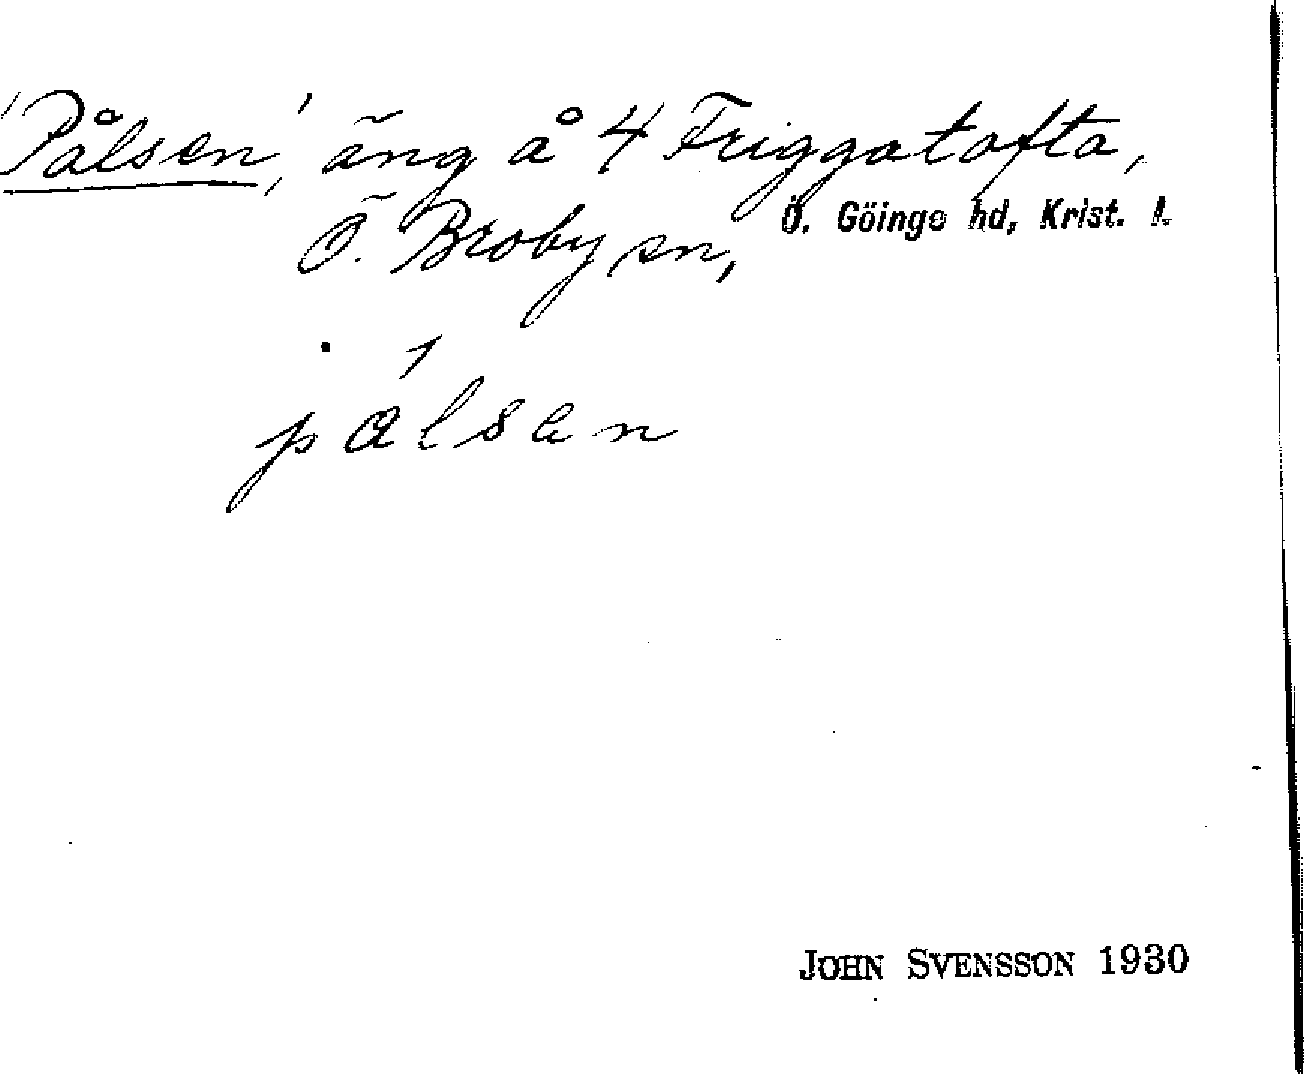 'Pålsen', äng å 4 Friggatofta,
Ö. Broby sn, Ö. Göinge hd, Krist. l.
pálsen
JOHN SVENSSON 1930